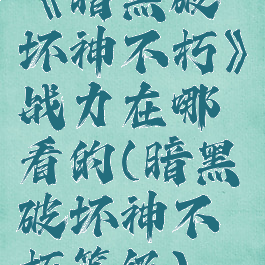 《暗黑破
坏神不朽》
战力在哪
看的(暗黑
破坏神不
朽等级)